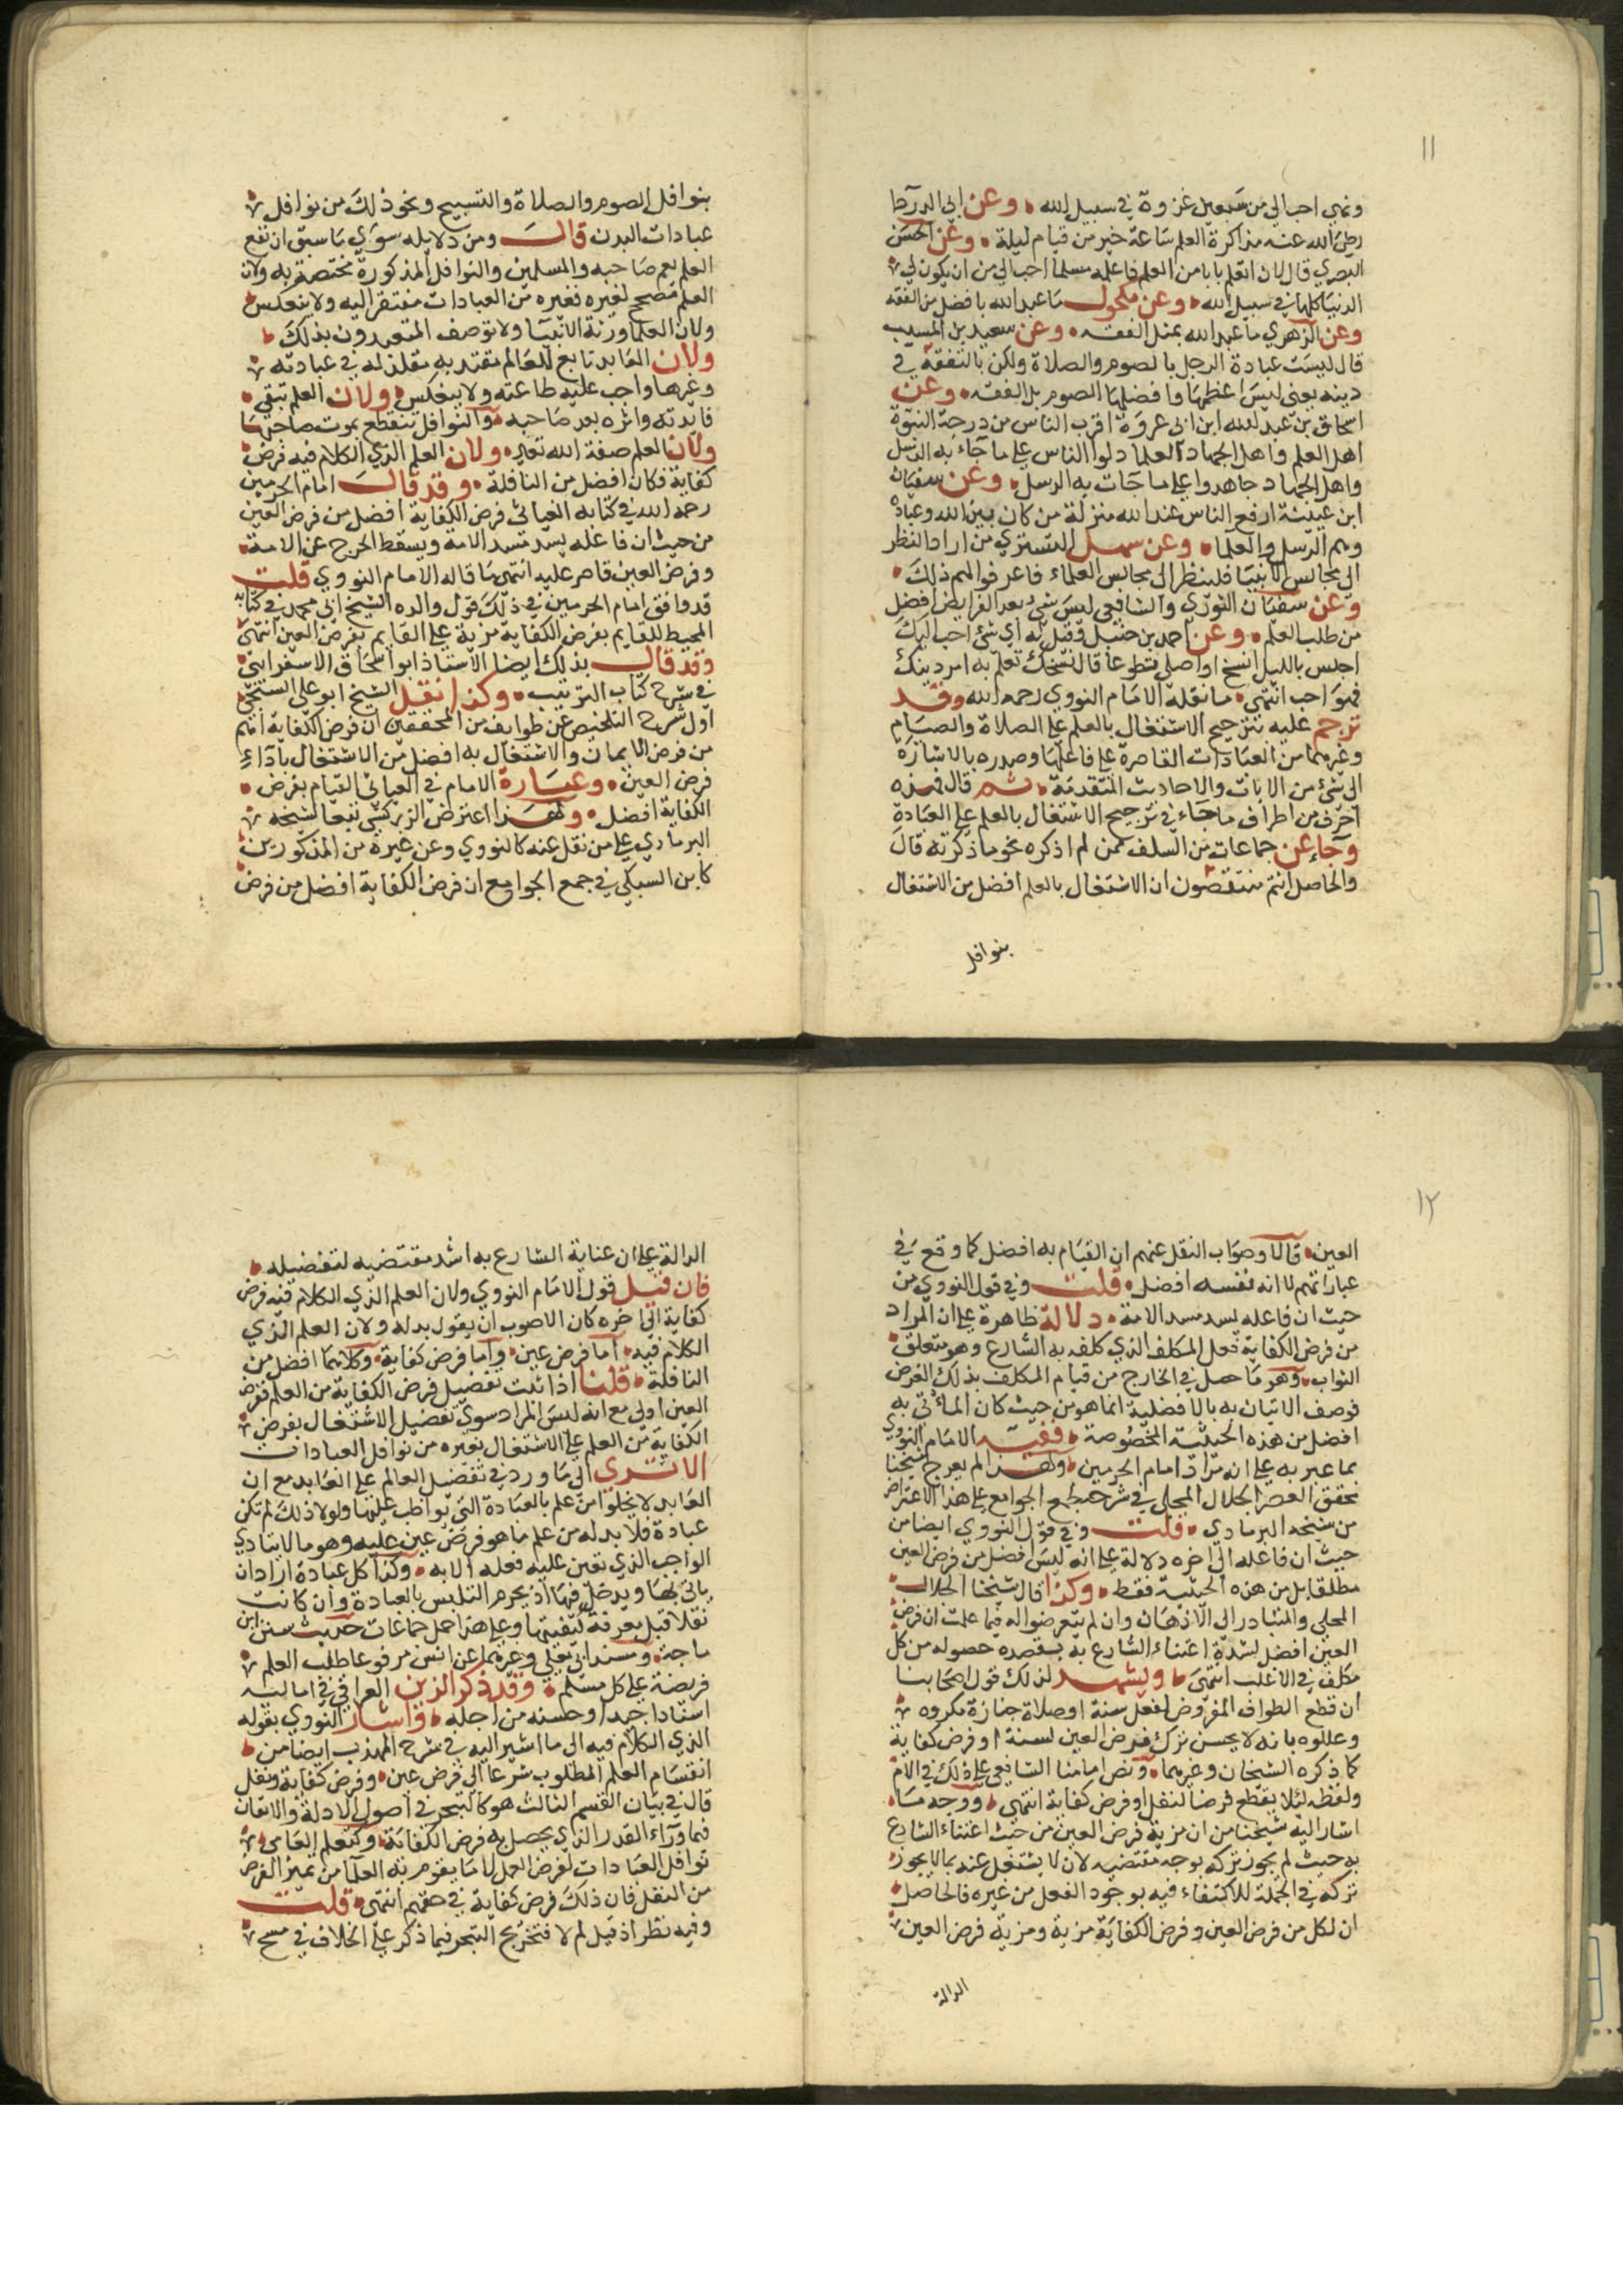 ١١
ونهي احب الي من سبعين غزوة في سبيل الله وعن ابي الدردا
رضي الله عنه مذاكرة العلم ساعة خير من قيام ليلة وعن الحسن
البصري قال لان اتعلم بابا من العلم فاعلمه مسلما احب الي من ان يكون لي
الدنيا كلها في سبيل الله وعن مكحول ما عبد الله بافضل من الفقه
وعن الزهري ما عبد الله بمثل الفقه وعن سعيد بن المسيب
قال ليست عبادة الرجل بالصوم والصلاة ولكن بالتفقه في
دينه يعني ليس اعظمها وافضلها الصوم بل الفقه وعن
اسحاق بن عبد الله ابن ابي عروة اقرب الناس من درجة النبوة
اهل العلم واهل الجهاد العلما دلوا الناس علي ما جاء به الرسل
واهل الجهاد جاهدوا علي ما جات به الرسل وعن سفيان
ابن عيينة ارفع الناس عند الله منزلة من كان بين الله وعباده
وهم الرسل والعلما وعن سهل التستري من اراد النظر
الي مجالس الانبيا فلينظر الي مجالس العلماء فاعرفوا لهم ذلك
وعن سفيان الثوري والشافعي ليس شي بعد الفرايض افضل
من طلب العلم وعن احمد بن حنبل وقيل له اي شي احب اليك
اجلس بالليل انسخ او اصلي تطوعا قال نسخك تعلم به امر دينك
فهو احب انتهي ما نقله الامام النووي رحمه الله وقد
ترجم عليه بترجيح الاشتغال بالعلم علي الصلاة والصيام
وغيرهما من العبادات القاصرة علي فاعلها وصدره بالاشارة
الي شي من الايات والاحاديث المتقدمة ثم قال فهذه
احرف من اطراف ما جاء في ترجيح الاشتغال بالعلم علي العبادة
وجاء عن جماعات من السلف ممن لم اذكره نحو ما ذكرته قال
والحاصل انهم متفقون ان الاشتغال بالعلم افضل من الاشتغال
بنوافل
بنوافل الصوم والصلاة والتسبيح ونحو ذلك من نوافل
عبادات البدن قال ومن دلايله سوي ما سبق ان نفع
العلم يعم صاحبه والمسلمين والنوافل المذكورة مختصة به ولان
العلم مصحح لغيره فغيره من العبادات مفتقر اليه ولا ينعكس
ولان العلما ورثة الانبيا ولا توصف المتعبدون بذلك
ولان العابد تابع للعالم مقتد به مقلد له في عبادته
وغيرها واجب عليه طاعته ولا ينعكس ولان العلم تبقي
فايدته واثره بعد صاحبه والنوافل تنقطع بموت صاحبها
ولان العلم صفة الله تعالي ولان العلم الذي الكلام فيه فرض
كفاية فكان افضل من النافلة وقد قال امام الحرمين
رحمه الله في كتابه الغياثي فرض الكفاية افضل من فرض العين
من حيث ان فاعله يسد مسد الامة ويسقط الحرج عن الامة
وفرض العين قاصر عليه انتهي ما قاله الامام النووي قلت
قد وافق امام الحرمين في ذلك قول والده الشيخ ابي محمد في كتابه
المحيط للقايم بفرض الكفاية مزية علي القايم بفرض العين انتهي
وقد قال بذلك ايضا الاستاذ ابو اسحاق الاسفرايني
في شرح كتاب الترتيب وكذا نقل الشيخ ابو علي السنجي
اول شرح التلخيص عن طوايف من المحققين ان فرض الكفاية اهم
من فرض الايمان والاشتغال به افضل من الاشتغال باداء
فرض العين وعبارة الامام في الغياثي القيام بفرض
الكفاية افضل ولهذا اعترض الزركشي تبعا لشيخه
البرماوي علي من نقل عنه كالنووي وعن غيره من المذكورين
كابن السبكي في جمع الجوامع ان فرض الكفاية افضل من فرض
١٢
العين قالا وصواب النقل عنهم ان القيام به افضل كما وقع في
عباراتهم لا انه نفسه افضل قلت وفي قول النووي من
حيث ان فاعله يسد مسد الامة دلالة ظاهرة علي ان المراد
من فرض الكفاية فعل المكلف الذي كلفه به الشارع وهو متعلق
الثواب وهو ما حصل في الخارج من قيام المكلف بذلك الفرض
فوصف الاتيان به بالافضلية انما هو من حيث كان الماتي به
افضل من هذه الحيثية المخصوصة ففيه الامام النووي
بما عبر به علي انه مراد امام الحرمين ولهذا لم يعرج شيخنا
محقق العصر الجلال المحلي في شرحه لجمع الجوامع علي هذا الاعتراض
من شيخه البرماوي قلت وفي قول النووي ايضا من
حيث ان فاعله الي اخره دلالة علي انه ليس افضل من فرض العين
مطلقا بل من هذه الحيثية فقط وكذا قال شيخنا الجلال
المحلي والمتبادر الي الاذهان وان لم يتعرضوا له فيما علمت ان فرض
العين افضل لشدة اعتناء الشارع به بقصده حصوله من كل
مكلف في الاغلب انتهي ويشهد لذلك قول اصحابنا
ان قطع الطواف المفروض لفعل سنة او صلاة جنازة مكروه
وعللوه بانه لا يحسن ترك فرض العين لسنة او فرض كفاية
كما ذكره الشيخان وغيرهما ونص امامنا الشافعي علي ذلك في الام
ولفظه لئلا يقطع فرضا لنفل او فرض كفاية انتهي ووجه ما
اشار اليه شيخنا من ان مزية فرض العين من حيث اعتناء الشارع
به حيث لم يجوز تركه بوجه مقتضيه لان لا يشتغل عنه بما لا يجوز
تركه في الجملة للاكتفاء فيه بوجود الفعل من غيره فالحاصل
ان لكل من فرض العين وفرض الكفاية مزية ومزية فرض العين
الدالة
الدالة علي ان عناية الشارع به اشد مقتضيه لتفضيله
فان قيل قول الامام النووي ولان العلم الذي الكلام فيه فرض
كفاية الي اخره كان الاصوب ان يقول بدله ولان العلم الذي
الكلام فيه اما فرض عين واما فرض كفاية وكلاهما افضل من
النافلة قلنا اذا ثبت تفضيل فرض الكفاية من العلم ففرض
العين اولي مع انه ليس المراد سوي تفضيل الاشتغال بفرض
الكفاية من العلم علي الاشتغال بغيره من نوافل العبادات
الا تري الي ما ورد في تفضيل العالم علي العابد مع ان
العابد لا يخلوا من علم بالعبادة التي يواظب عليها ولولا ذلك لم تكن
عبادة فلا بد له من علم ما هو فرض عين عليه وهو ما لا يتادي
الواجب الذي تعين عليه فعله الا به وكذا كل عبادة اراد ان
ياتي بها ويدخل فيها اذ يحرم التلبس بالعبادة وان كانت
نفلا قبل معرفة كيفيتها وعلي هذا حمل جماعات حديث سنن ابن
ماجة ومسند ابي يعلي وغيرهما عن انس مرفوعا طلب العلم
فريضة علي كل مسلم وقد ذكر الزين العراقي في اماليه
اسنادا جيدا وحسنه من اجله واشار النووي بقوله
الذي الكلام فيه الي ما اشير اليه في شرح المهذب ايضا من
انقسام العلم المطلوب شرعا الي فرض عين وفرض كفاية ونفل
قال في بيان القسم الثالث هو كالتبحر في اصول الادلة والاتقان
فيما وراء القدر الذي يحصل به فرض الكفاية وكتعلم العامي
نوافل العبادات لغرض العمل لا ما يقوم به العلما من تمييز الفرض
من النفل فان ذلك فرض كفاية في حقهم انتهي قلت
وفيه نظر اذ قيل لم لا فتخريج التبحر فيما ذكر علي الخلاف في مسح